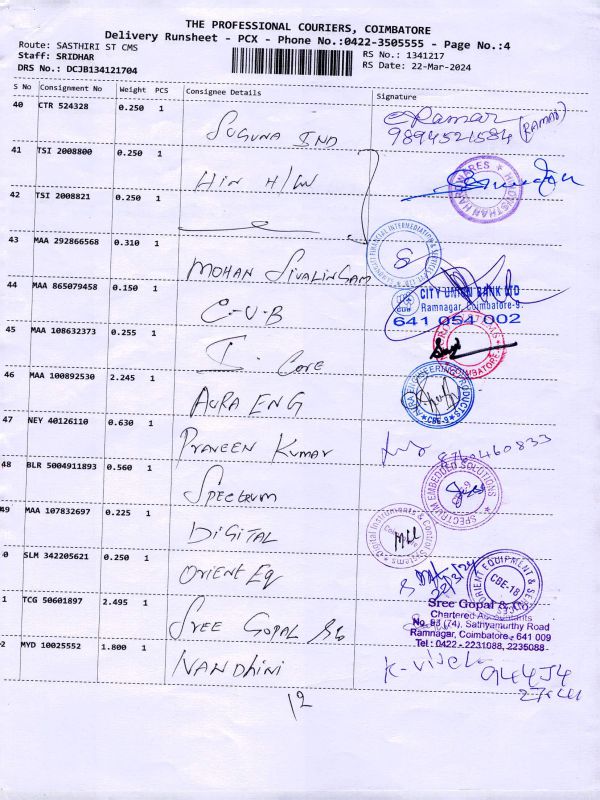 THE PROFESSIONAL COURIERS, COIMBATORE
Delivery Runsheet - PCX - Phone No.:0422-3505555 - Page No.:4
Route: SASTHIRI ST CMS
RS No.: 1341217
Staff: SRIDHAR
RS Date: 22-Mar-2024
DRS No.: DCJB134121704
S No Consignment No Weight PCS Consignee Details Signature
40 CTR 524328 0.250 1
SUGUNA IND
Ramar (RAMAR)
9894521584
41 TSI 2008800 0.250 1
HIN H/W
42 TSI 2008821 0.250 1
43 MAA 292866568 0.310 1
MOHAN SIVALINGAM
44 MAA 865079458 0.150 1
C-U-B
CITY UNION BANK LTD
Ramnagar, Coimbatore-9.
641 054 002
45 MAA 108632373 0.255 1
I. Core
46 MAA 100892530 2.245 1
AURA ENG
CBE-9
47 NEY 40126110 0.630 1
PRAVEEN KUMAR
8760460833
48 BLR 5004911893 0.560 1
SPECTRUM
SPECTRUM EMBEDDED SOLUTIONS
49 MAA 107832697 0.225 1
DIGITAL
Digital Instruments & Control Systems
0 SLM 342205621 0.250 1
ORIENT Eq
22/3/24
ORIENT EQUIPMENT &
CBE-18
1 TCG 50601897 2.495 1
SREE GOPAL
Sree Gopal & Co
Chartered Accountants
No. 93 (74), Sathyamurthy Road
Ramnagar, Coimbatore - 641 009
Tel : 0422 - 2231088, 2235088
2 MYD 10025552 1.800 1
NANDHINI
12